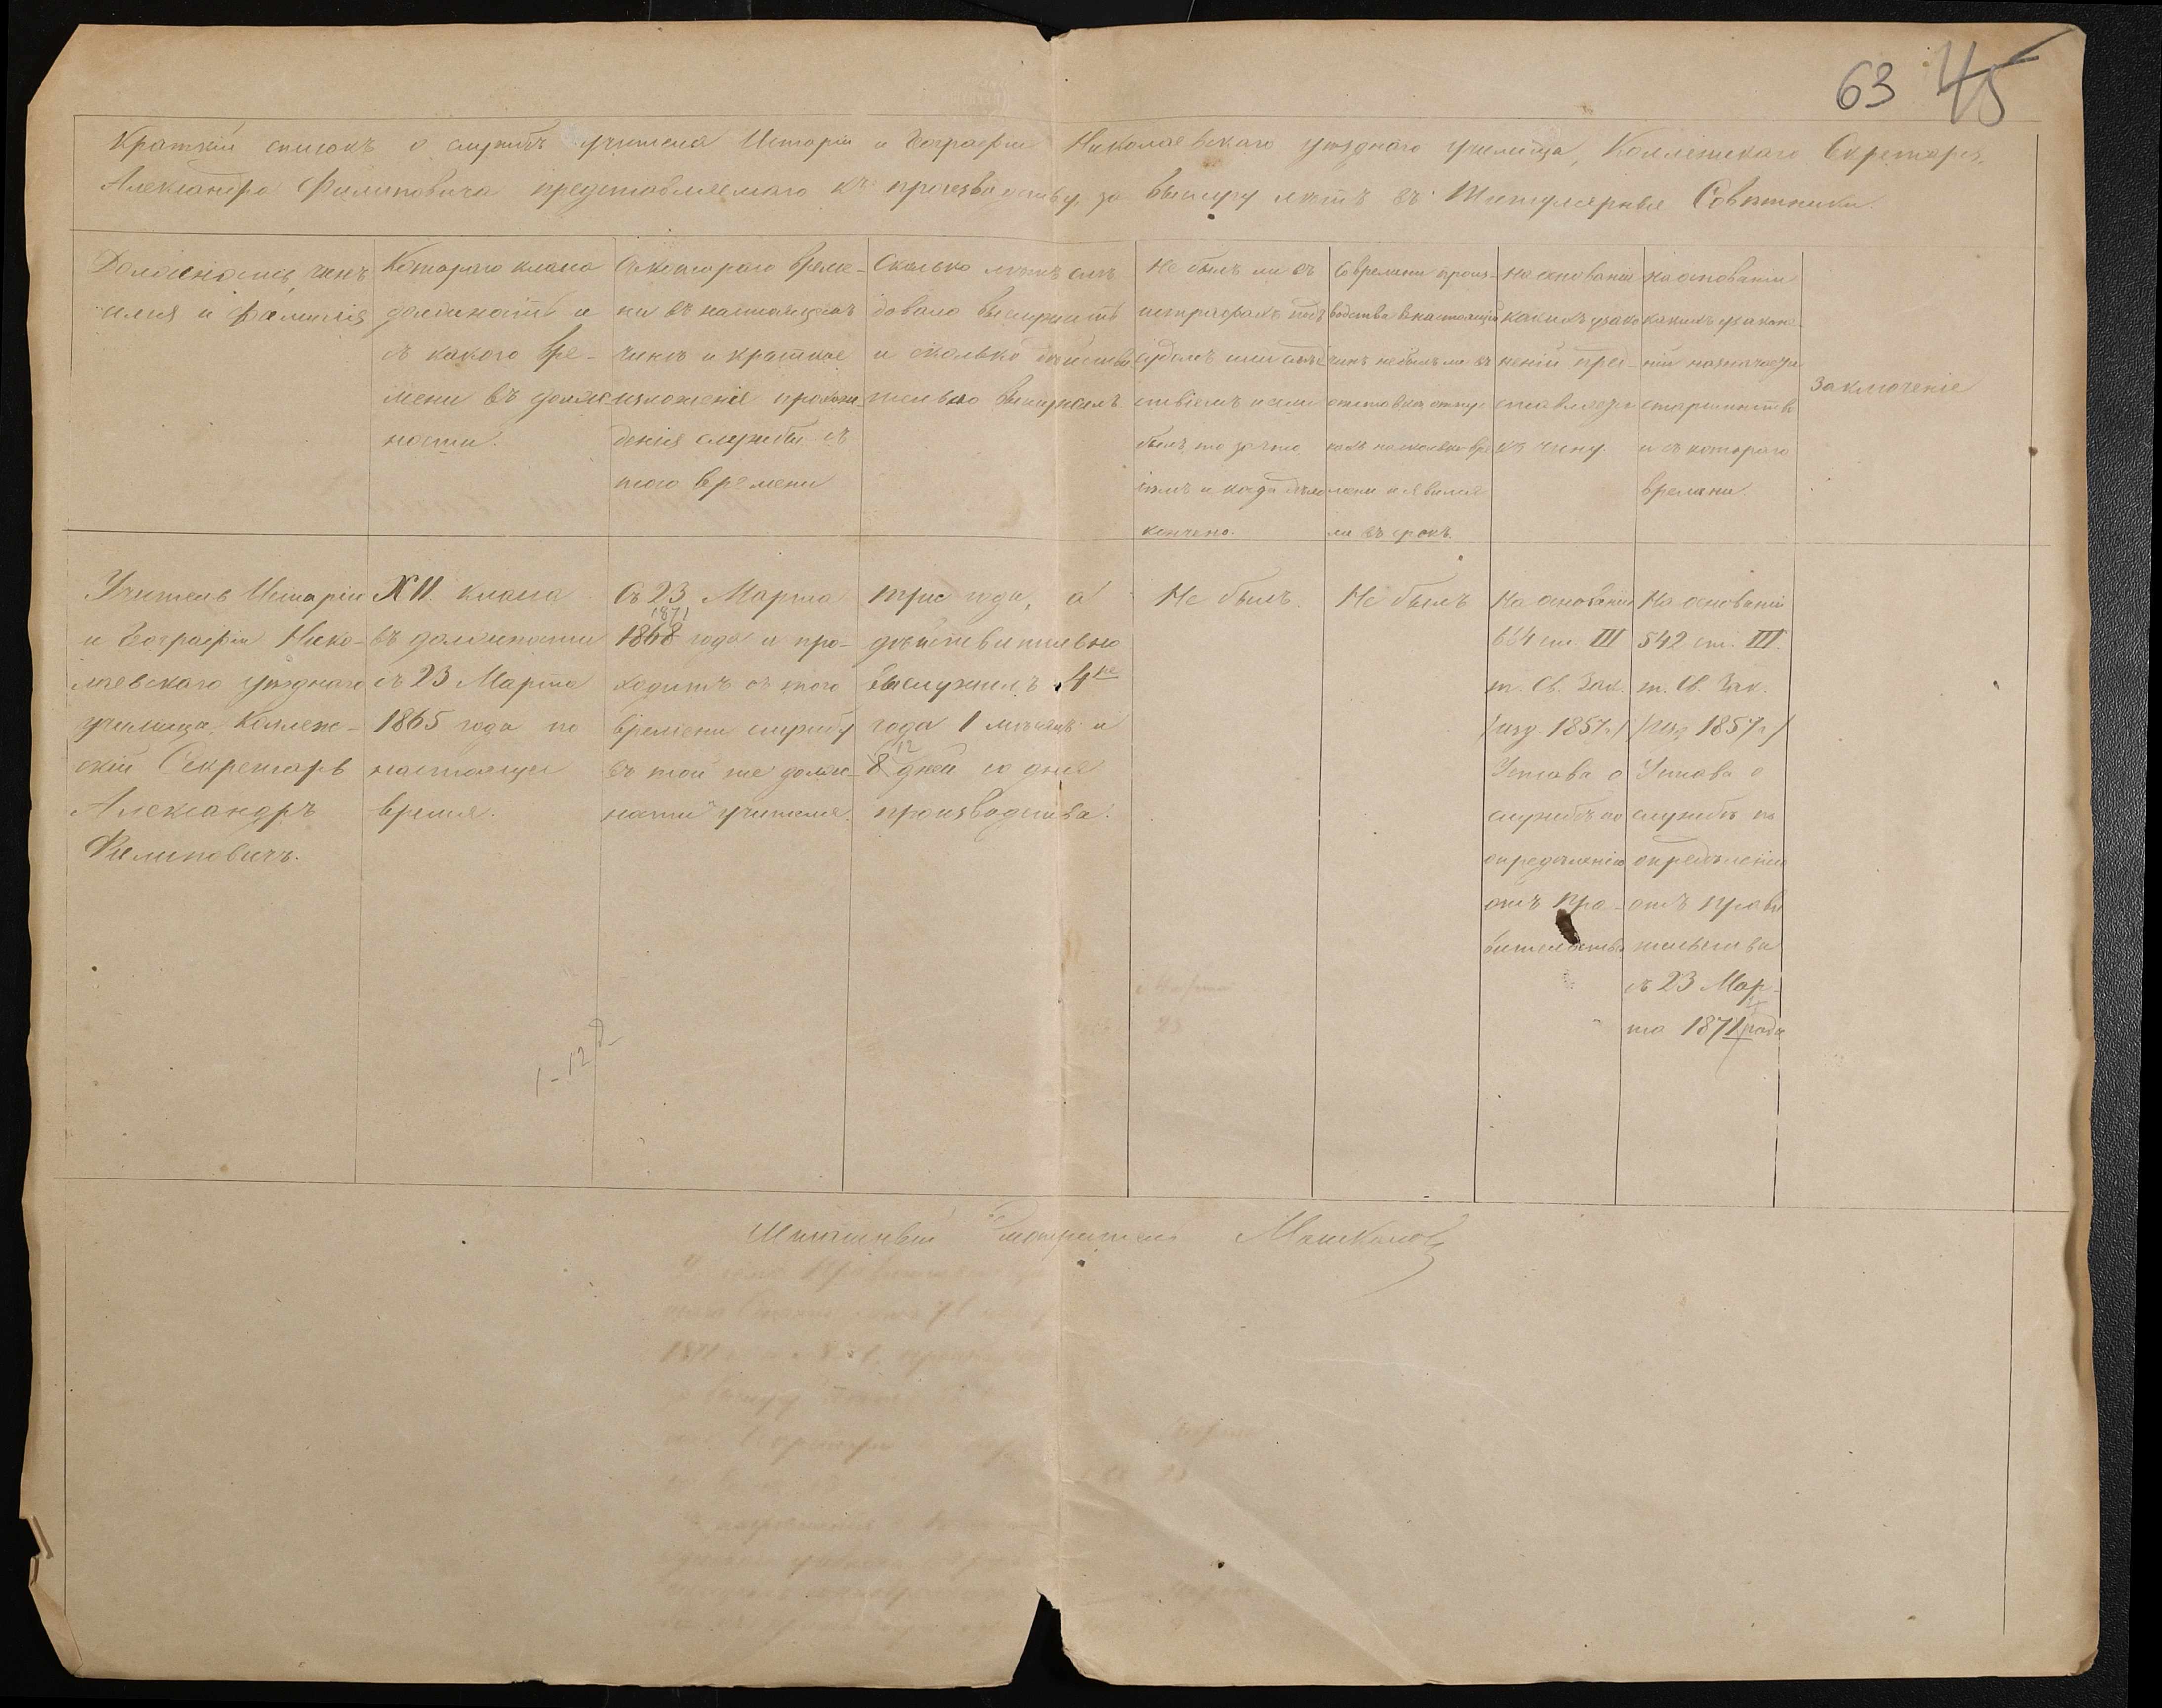 63 45
Краткій списокъ о службѣ учителя Исторіи и Географіи Николаевскаго уѣзднаго училища, Коллежскаго Секретаря
Александра Филиповича представляемаго къ производству за выслугу лѣтъ въ Титулярные Совѣтники.
Должность, чинъ
имя и фамилія
Котораго класса
должность и
съ какого вре-
мени въ долж-
ности.
Съ котораго време-
ни въ настоящемъ
чинѣ и краткое
изложеніе прохож-
денія службы съ
того времени
Сколько лѣтъ слѣ-
довало выслужить
и сколько дѣйстви
тельно выслужилъ.
Не былъ ли въ
штрафахъ подъ
судомъ или слѣд
ствіемъ и если
былъ, то за что
имъ и когда дѣло
кончено.
Со времени произ-
водства въ настоящій
чинъ не былъ ли въ
отставкѣ отпус
кахъ на сколько вре
мени и явился
ли въ срокъ
На основаніи
какихъ узако
неній пред-
ставляется
къ чину
На основаніи
какихъ узаконе-
ній назначается
старшинство
и съ котораго
времени.
Заключеніе
Учитель Исторіи
и Географіи Нико-
лаевскаго уѣзднаго
училища, Коллеж-
скій Секретарь
Александръ
Филиповичъ.
XII класса
въ должности
съ 23 Марта
1865 года по
настоящее
время.
Съ 23 Марта
1871
1868 года и про-
ходитъ съ того
времени службу
въ той же долж-
ности учителя.
три года, а
дѣйствительно
выслужилъ 4
года 1 мѣсяцъ и
12
8 дней со дня
производства.
Не былъ.
Не былъ
На основаніи
664 ст. III
т. Св. Зак.
(изд. 1857 г)
Устава о
службѣ по
опредѣленію
отъ Пра-
вительства
На основаніи
542 ст. III.
т. Св. Зак.
(Изд 1857 г)
Устава о
службѣ по
опредѣленію
отъ Прави
тельства
съ 23 Мар-
та 1871 года
1 - 12 д
Штатный Смотритель Машковъ